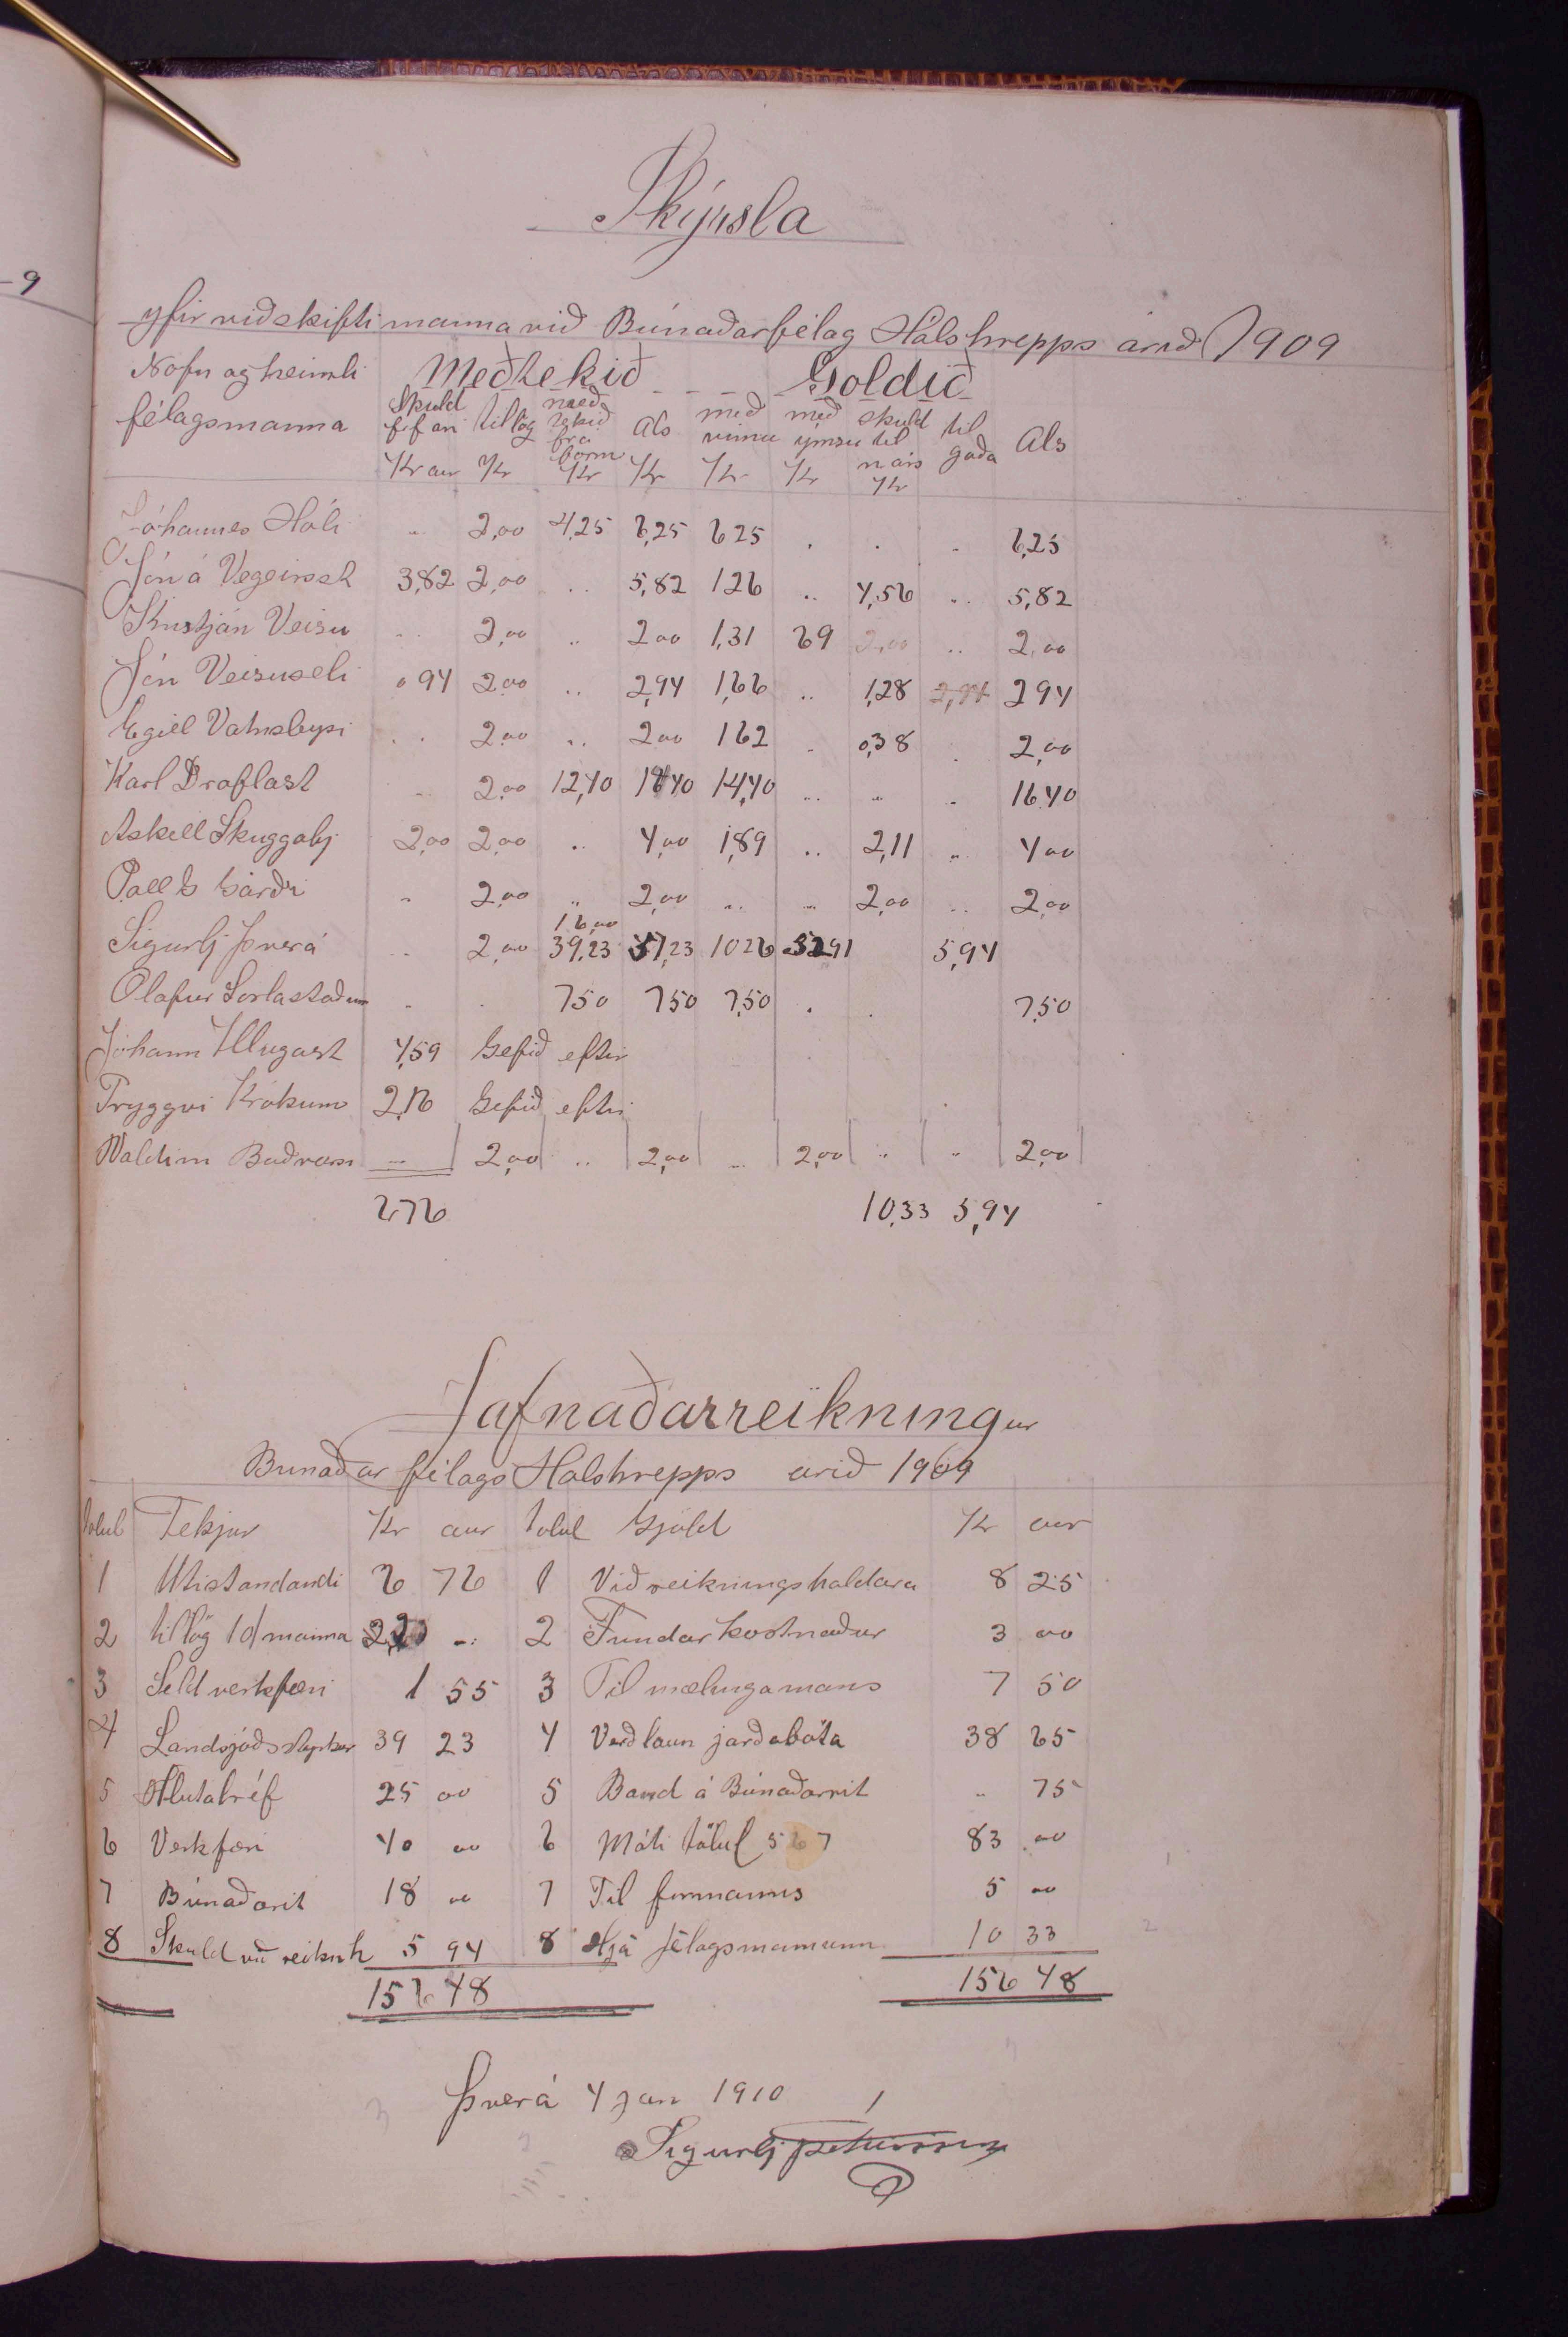 -9
Skýrsla
yfir viðskifti manna við Búnaðarfélag Hálshrepps arið 1909
Nofn og heimili Meðtekið Goldið
félagsmanna Skuld f.f ári tillög með tekið frá form als með vinnu með ymsu skuld til n árs til góða Als
Kr aur Kr Kr Kr Kr Kr Kr
Jóhannes Hóli .. 2,00 4,25 6,25 625 . . .. 6,25
Jón á Vegeirsst 3,82 2,00 .. 5,82 126 .. 4,56 .. 5,82
Kristján Veisu .. 2,00 .. 200 1,31 69 2,00 .. 2,00
Jón Veisuseli 094 2,00 .. 2,94 1,66 .. 1,28 2,94 294
Egill Vatnsleysi .. 2,00 .. 200 162 .. 0,38 . 2,00
Karl Draflast .. 2,00 12,40 1440 14,40 .. .. .. 16.40
Askell Skuggabj 2,00 2,00 .. 4,00 1,89 .. 2,11 .. 400
Pall G Garði .. 2,00 .. 2,00 .. .. 2,00 .. 2,00
16,00
Sigurbj Þverá .. 2,00 39,23 57,23 1026 52,91 5,94
Olafur Sorlastöðum . . 750 750 7,50 . . 7,50
Jóhann Illugast 4,59 Gefið eftir
Tryggvi Krókum 2,16 Gefið eftir
Valdim Baðvarsn .. 2,00 .. 2,00 .. 2,00 .. .. 2,00
676 10,33 5,94
Jafnaðarreikningur
Bunaðar félags Halshrepps arið 1909
tolul Tekjur Kr aur tolul Gjöld Kr aur
1 Utistandandi 6 76 1 Við reikningshaldara 8 25
2 tillög 10 manna 20 .. 2 Fundar kostnaður 3 00
3 Seld verkfæri 1 55 3 Til mælingamans 7 50
4 Landsjóðsstyrkur 39 23 4 Verðlaun jarðabóta 38 65
5 Hlutabréf 25 00 5 Band á Búnaðarrit .. 75
6 Verkfæri 40 00 6 Móti tölul 5 6 7 83 00
7 Búnaðarit 18 00 7 Til formanns 5 00
8 Skuld við reiknh 5 94 8 Hjá félagsmönnum 10 33
156 48 156 48
Þverá 4 Jan 1910
Sigurbj